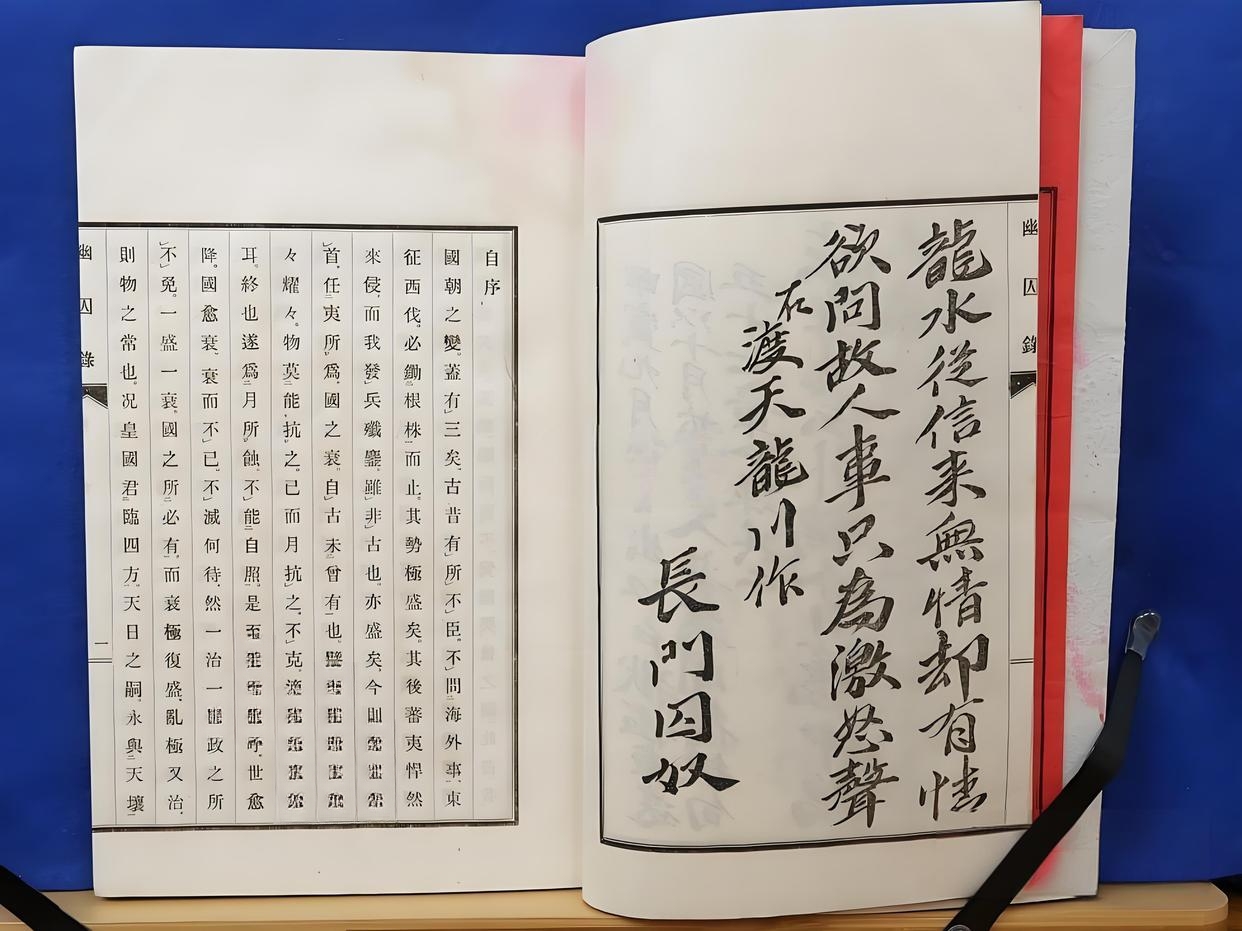 幽囚錄
龍水從信来無情却有情
欲問故人事只為激怒聲
右渡天龍川作
長門囚奴
自序
國朝之變。蓋有三矣、古昔有所不臣。不問海外事、東
征西伐。必鋤根株而止。其勢極盛矣。其後蕃夷悍然
來侵、而我發兵殲鏖。雖非古也。亦盛矣、今則
首、任夷所爲。國之衰。自古未曾有也。
々耀々。物莫能抗之。已而月抗之。不克。
耳。終也遂爲月所蝕。不能自照。是 世愈
降。國愈衰、衰而不已。不滅何待、然一治一 政之所
不免。一盛一衰。國之所必有、而衰極復盛。亂極又治、
則物之常也。况皇國君臨四方。天日之嗣。永與天壤
幽囚錄
一